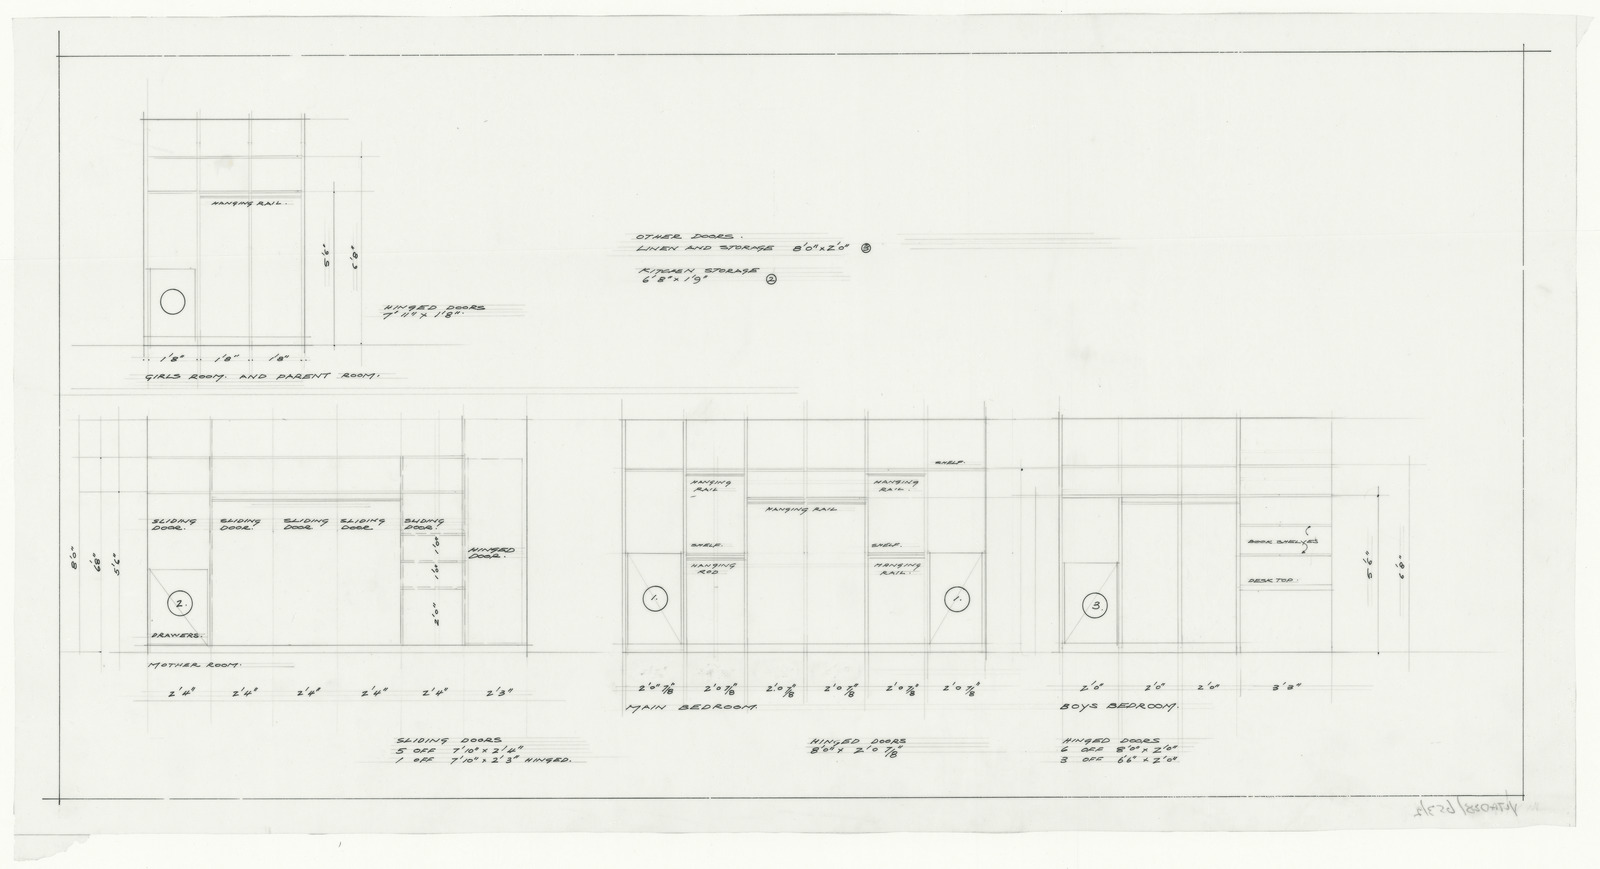 HANGING RAIL.
5'6"
6'8"
HINGED DOORS
7' 11" x 1'8".
1'8" 1'8" 1'8"
GIRLS ROOM. AND PARENT ROOM.
OTHER DOORS.
LINEN AND STORAGE 8'0" x 2'0" 3
KITCHEN STORAGE
6'8" x 1'9" 2
8'0"
6'8"
5'6"
SLIDING DOOR.
SLIDING DOOR.
SLIDING DOOR
SLIDING DOOR
SLIDING DOOR.
1'0"
1'0"
2'0"
HINGED DOOR.
2.
DRAWERS.
MOTHER ROOM.
2'4" 2'4" 2'4" 2'4" 2'4" 2'3"
SLIDING DOORS
5 OFF 7'10" x 2'4"
1 OFF 7'10" x 2'3" HINGED.
SHELF.
HANGING RAIL
HANGING RAIL.
HANGING RAIL
SHELF.
SHELF.
HANGING ROD
HANGING RAIL.
1.
1.
2'0" 7/8 2'0 7/8 2'0 7/8 2'0 7/8 2'0 7/8 2'0 7/8
MAIN BEDROOM.
HINGED DOORS
8'0" x 2'0 7/8"
BOOK SHELVES
DESK TOP.
3.
5'6"
6'8"
2'0" 2'0" 2'0" 3'3"
BOYS BEDROOM.
HINGED DOORS
6 OFF 8'0" x 2'0"
3 OFF 6'6" x 2'0"